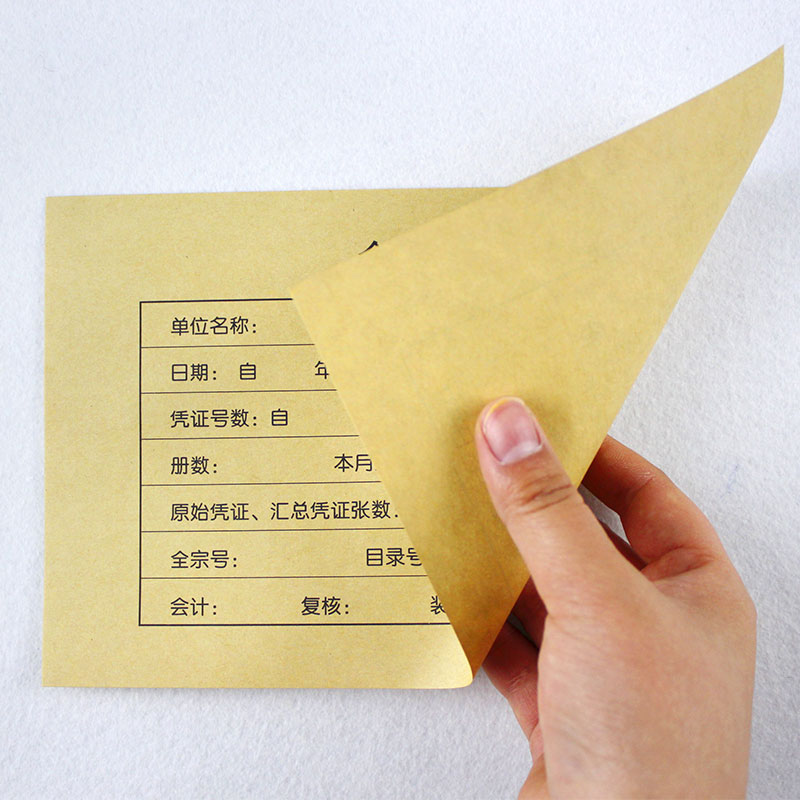 单位名称：
日期： 自 年
凭证号数：自
册数： 本月
原始凭证、汇总凭证张数
全宗号： 目录号
会计： 复核： 装